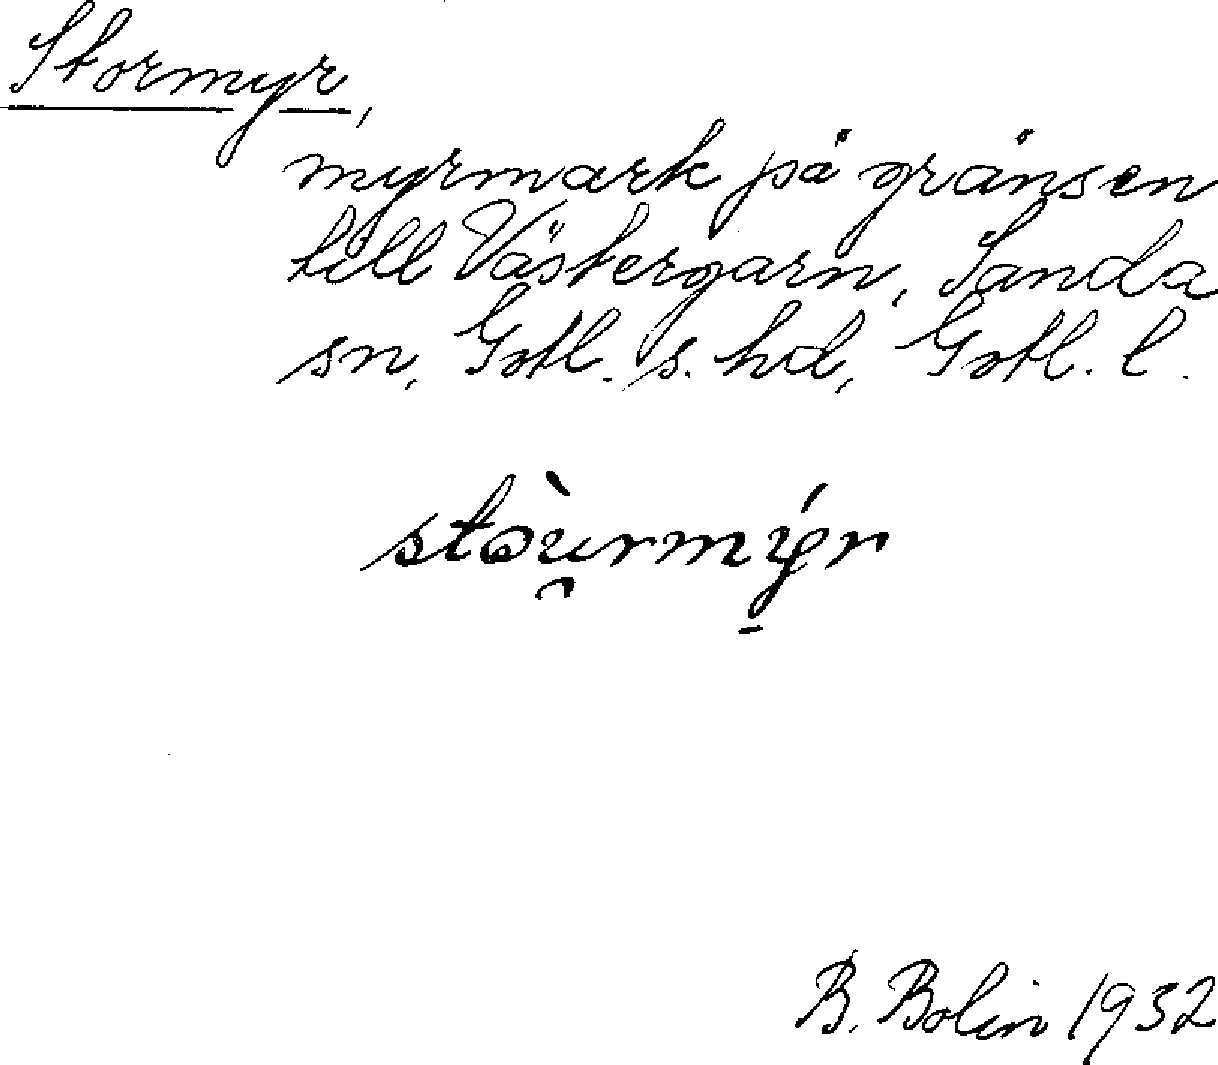 Stormyr,
myrmark på gränsen
till Västergarn, Sanda
sn, Gotl. s. hd, Gotl. l.
stòu̯rmýr
B. Bolin 1932